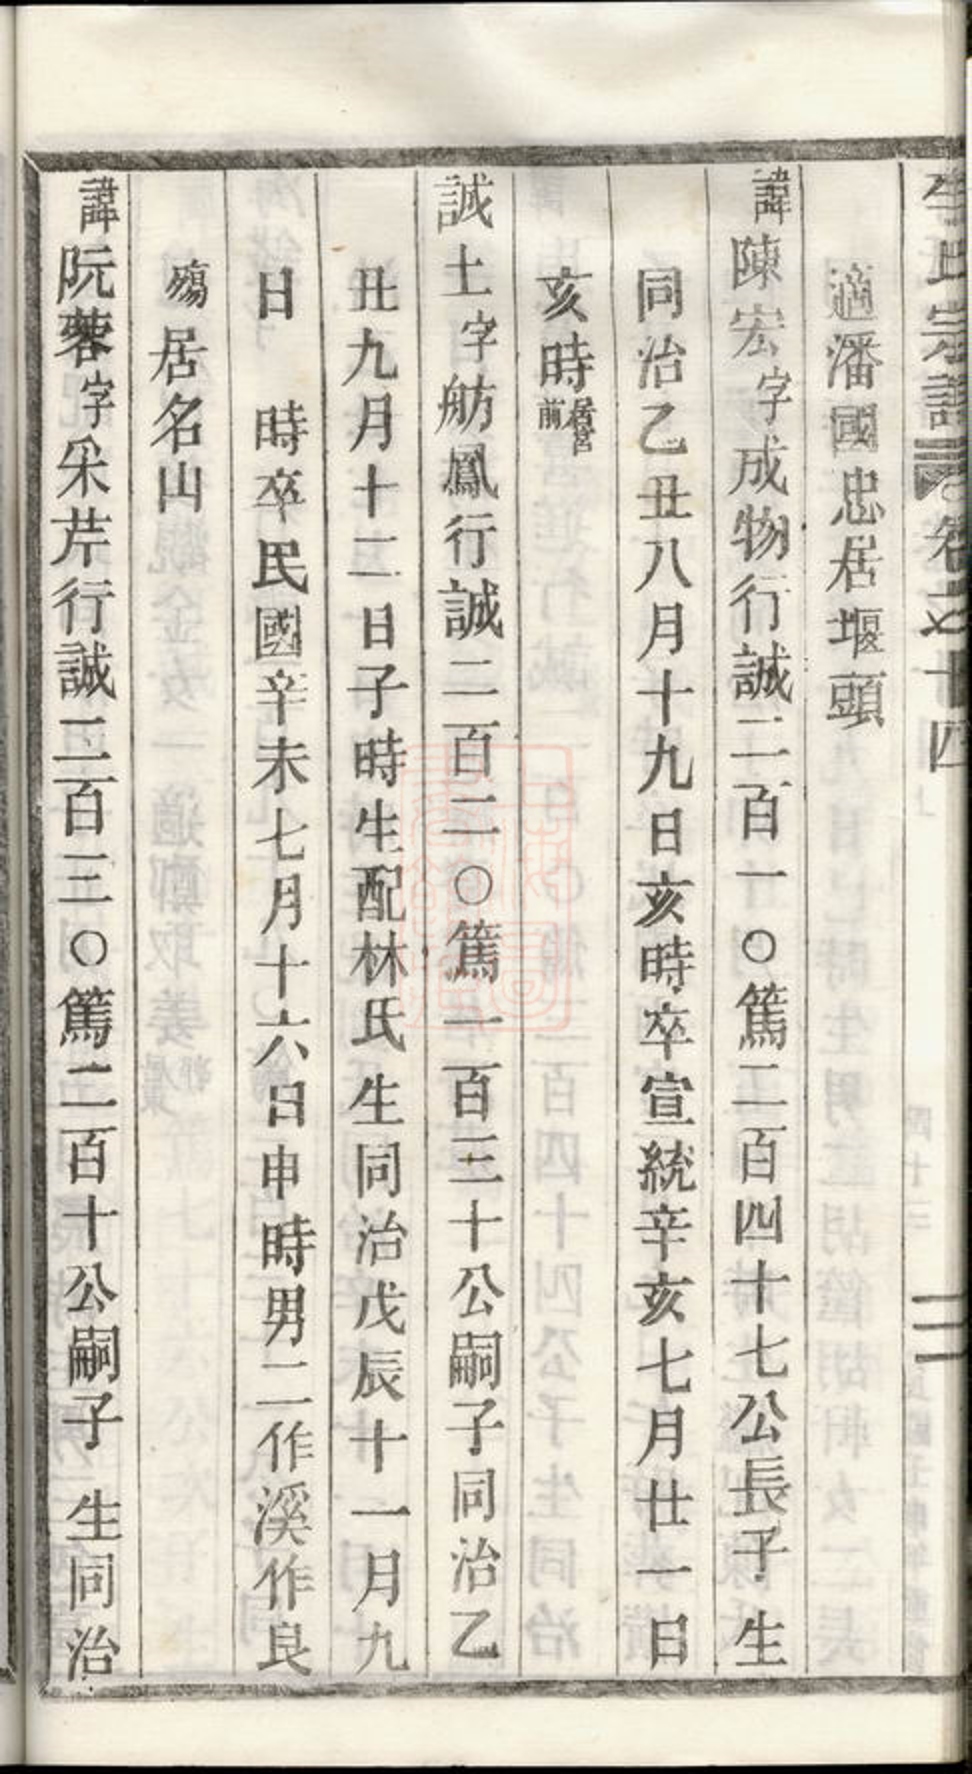 李氏宗譜 卷之十四 二
適潘國忠居堰頭
諱陳宏字成物行誠二百一〇篤二百四十七公長子 生
同治乙丑八月十九日亥時卒宣統辛亥七月廿一日
亥時居宮前
誠士字舫鳳行誠二百二〇篤一百三十公嗣子同治乙
丑九月十二日子時生配林氏 生同治戊辰十一月九
日 時卒民國辛未七月十六日申時男二作溪作良
殤居名山
諱阮蓉字采芹行誠二百三〇篤二百十公嗣子 生同治